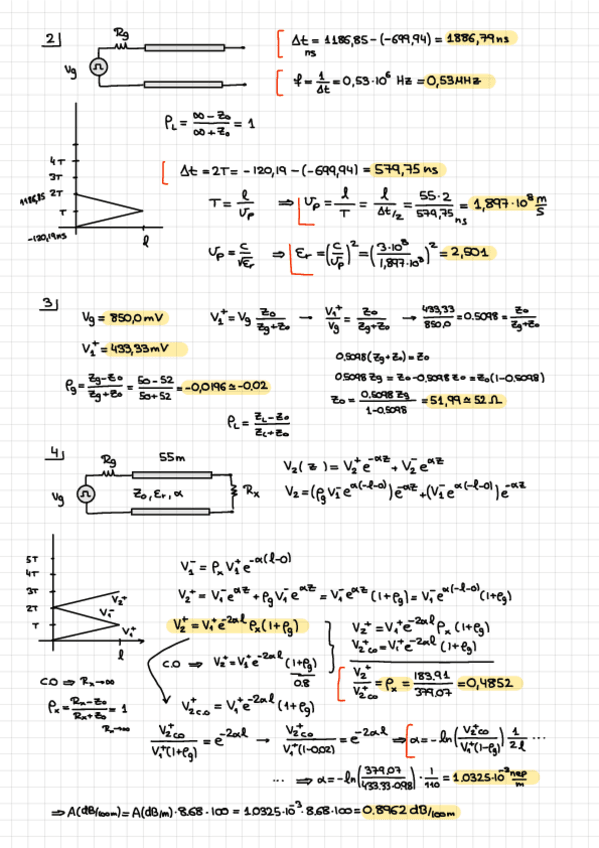 2|
Rg
Vg
Δt = 1186,85 - (-699,94) = 1886,79 ns
ns
f = 1/Δt = 0,53·10⁶ Hz = 0,53MHz
ρL = (∞ - Z₀)/(∞ + Z₀) = 1
4T
3T
1186,85 2T
T
-120,19ns
l
Δt = 2T = -120,19 - (-699,94) = 579,75 ns
T = l/Up ⇒ Up = l/T = l/(Δt/2) = 55·2/579,75 ns = 1,897·10⁸ m/s
Up = c/√εr ⇒ εr = (c/Up)² = (3·10⁸/1,897·10⁸)² = 2,501
3|
Vg = 850,0 mV
V₁⁺ = Vg Z₀/(Zg+Z₀) → V₁⁺/Vg = Z₀/(Zg+Z₀) → 433,33/850,0 = 0.5098 = Z₀/(Zg+Z₀)
V₁⁺ = 433,33 mV
0,5098(Zg+Z₀) = Z₀
ρg = (Zg-Z₀)/(Zg+Z₀) = (50-52)/(50+52) = -0,0196 ≃ -0,02
0.5098 Zg = Z₀ - 0,5098 Z₀ = Z₀(1-0.5098)
Z₀ = 0,5098 Zg/(1-0.5098) = 51,99 ≃ 52 Ω
ρL = (ZL-Z₀)/(ZL+Z₀)
4|
Rg
55m
Vg
Z₀, εr, α
Rx
V₂(z) = V₂⁺e^(-αz) + V₂⁻e^(αz)
V₂ = (ρg V₁⁻e^(α(-l-0)))e^(-αz) + (V₁⁻e^(α(-l-0)))e^(-αz)
5T
4T
3T
2T
T
V₂⁺
V₁⁻
V₁⁺
l
V₁⁻ = ρx V₁⁺e^(-α(l-0))
V₂⁺ = V₁⁻e^(αz) + ρg V₁⁻e^(αz) = V₁⁻e^(αz)(1+ρg) = V₁⁻e^(α(-l-0))(1+ρg)
V₂⁺ = V₁⁺e^(-2αl) ρx(1+ρg)
V₂⁺ = V₁⁺e^(-2αl) ρx(1+ρg)
V₂⁺co = V₁⁺e^(-2αl)(1+ρg)
C.O ⇒ V₂⁺ = V₁⁺e^(-2αl) (1+ρg)
0.8
V₂⁺/V₂⁺co = ρx = 183,91/379,07 = 0,4852
C.O ⇒ Rx→∞
ρx = (Rx-Z₀)/(Rx+Z₀) = 1
Rx→∞
V₂⁺c.o = V₁⁺e^(-2αl)(1+ρg)
V₂⁺co/V₁⁺(1+ρg) = e^(-2αl) → V₂⁺co/V₁⁺(1-0,02) = e^(-2αl) ⇒ α = -ln(V₂⁺co/V₁⁺(1-ρg)) 1/2l ...
... ⇒ α = -ln(379,07/433.33·0.98)·1/110 = 1.0325·10⁻³ nep/m
⇒ A(dB/100m) = A(dB/m)·8.68·100 = 1.0325·10⁻³·8.68·100 = 0.8962 dB/100m